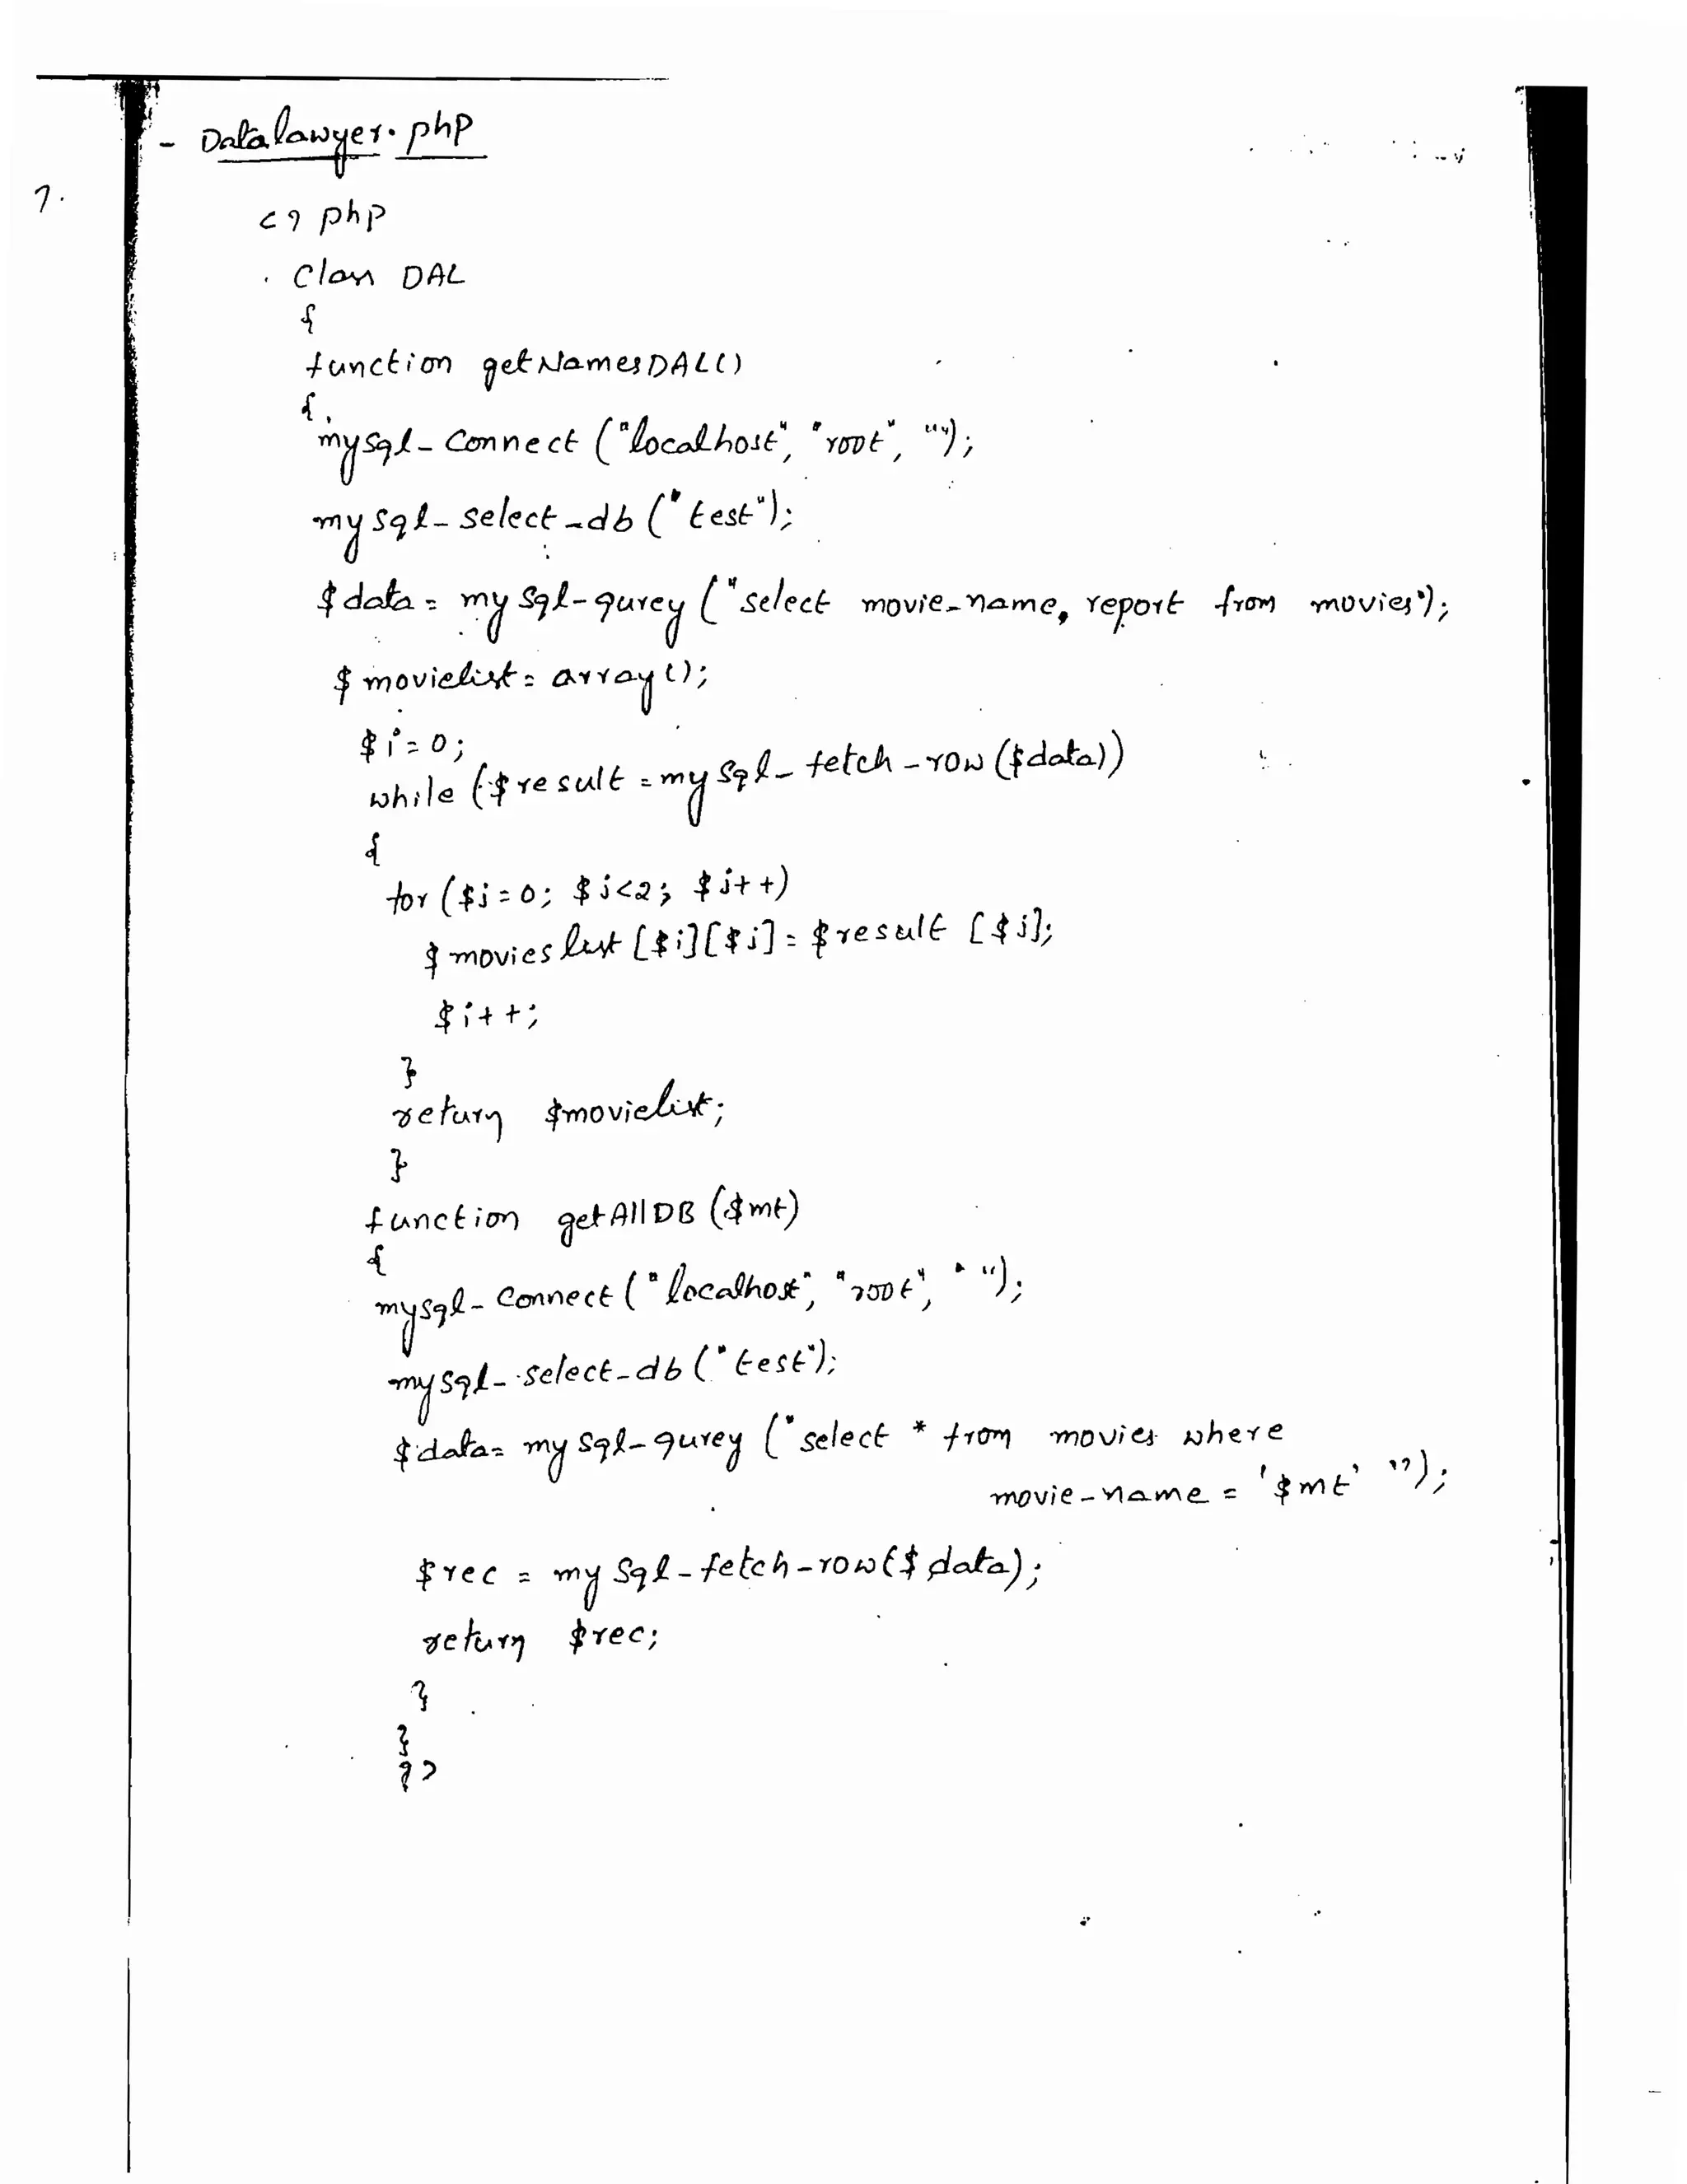 - Datalawyer.php
7.
<? php
class DAL
{
function getNamesDAL()
{
mysql_connect ("localhost", "root", "");
mysql_select_db ("test");
$data = mysql_qurey ("select movie_name, report from movies");
$movielist = array();
$i = 0;
while ($result = mysql_fetch_row ($data))
{
for ($j = 0; $j<2; $j++)
$movieslist [$i][$j] = $result [$j];
$i++;
}
return $movielist;
}
function getAllDB ($mt)
{
mysql_connect ("localhost", "root", " ");
mysql_select_db ("test");
$data = mysql_qurey ("select * from movies where
movie_name = '$mt' ");
$rec = mysql_fetch_row ($data);
return $rec;
}
}
?>